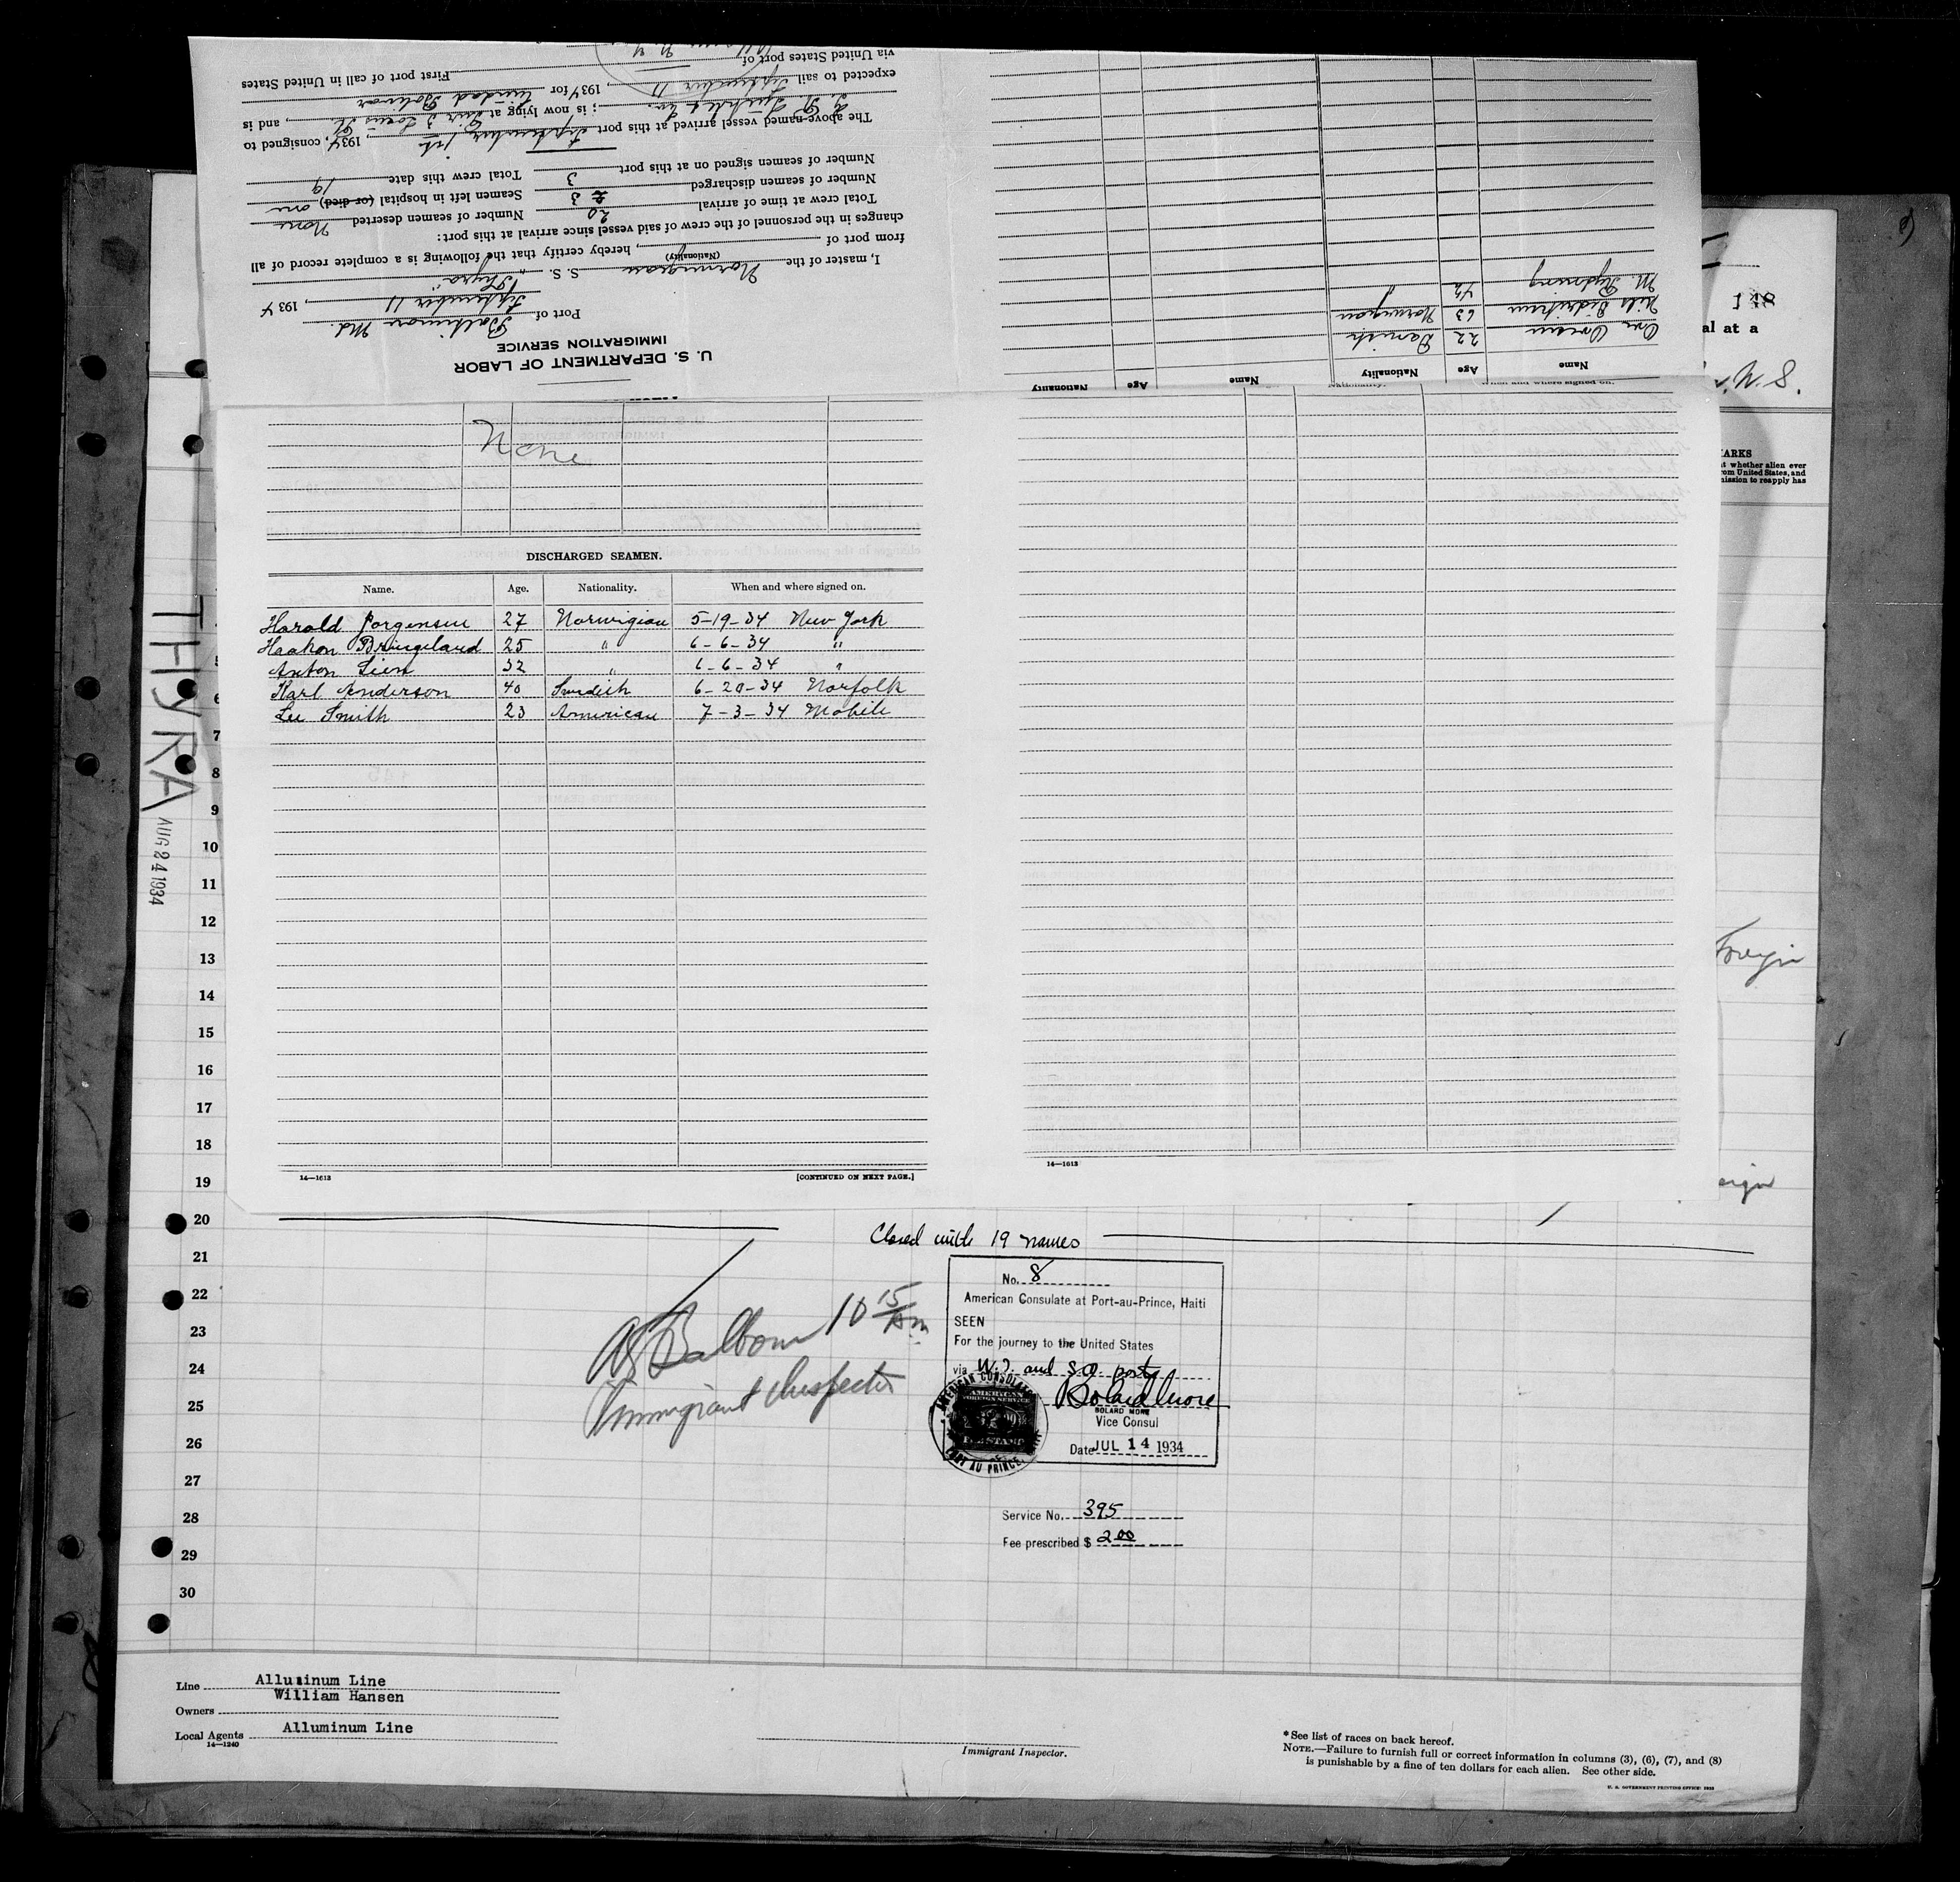 U. S. DEPARTMENT OF LABOR
IMMIGRATION SERVICE
Port of Baltimore Md.
September 11, 1934
I, master of the Norwegian S. S. "Thyra"
(Nationality)
from port of , hereby certify that the following is a complete record of all
changes in the personnel of the crew of said vessel since arrival at this port:
Total crew at time of arrival 20 Number of seamen deserted None
Number of seamen discharged 3 Seamen left in hospital (or died) one
Number of seamen signed on at this port 3 Total crew this date 19
The above-named vessel arrived at this port September 1st, 1934, consigned to
; is now lying at Pier 3 Locust Pt, and is
expected to sail September 11, 1934 for Ciudad Bolivar
via United States port of First port of call in United States
Name Age Nationality Name Age Nationality
22 Danish
63 Norwegian
When and where signed on.
Nationality.
None
DISCHARGED SEAMEN.
Name. Age. Nationality. When and where signed on.
Harold Jorgensen 27 Norwigian 5-19-34 New York
Haakon Bringeland 25 " 6-6-34 "
Anton Lien 32 " 6-6-34 "
Karl Anderson 40 Swedish 6-20-34 Norfolk
Lee Smith 23 American 7-3-34 Mobile
14—1613 [CONTINUED ON NEXT PAGE.]
14—1613
THYRA
AUG 24 1934
al at a
N. Y.
ARKS
t whether alien ever
rom United States, and
mission to reapply has
Foreign
eign
5
6
7
8
9
10
11
12
13
14
15
16
17
18
19
20
21
22
23
24
25
26
27
28
29
30
Closed with 19 names
10 15 am
Immigrant Inspector
No. 8
American Consulate at Port-au-Prince, Haiti
SEEN
For the journey to the United States
via W.I. and S.A. ports
Bolard More
BOLARD MORE
Vice Consul
Date JUL 14 1934
AMERICAN CONSULATE
PORT AU PRINCE
AMERICAN
FOREIGN SERVICE
FEE STAMP
Service No. 395
Fee prescribed $ 2.00
Line Alluminum Line
William Hansen
Owners
Local Agents Alluminum Line
14—1240
Immigrant Inspector.
* See list of races on back hereof.
NOTE.—Failure to furnish full or correct information in columns (3), (6), (7), and (8)
is punishable by a fine of ten dollars for each alien. See other side.
U. S. GOVERNMENT PRINTING OFFICE: 1932